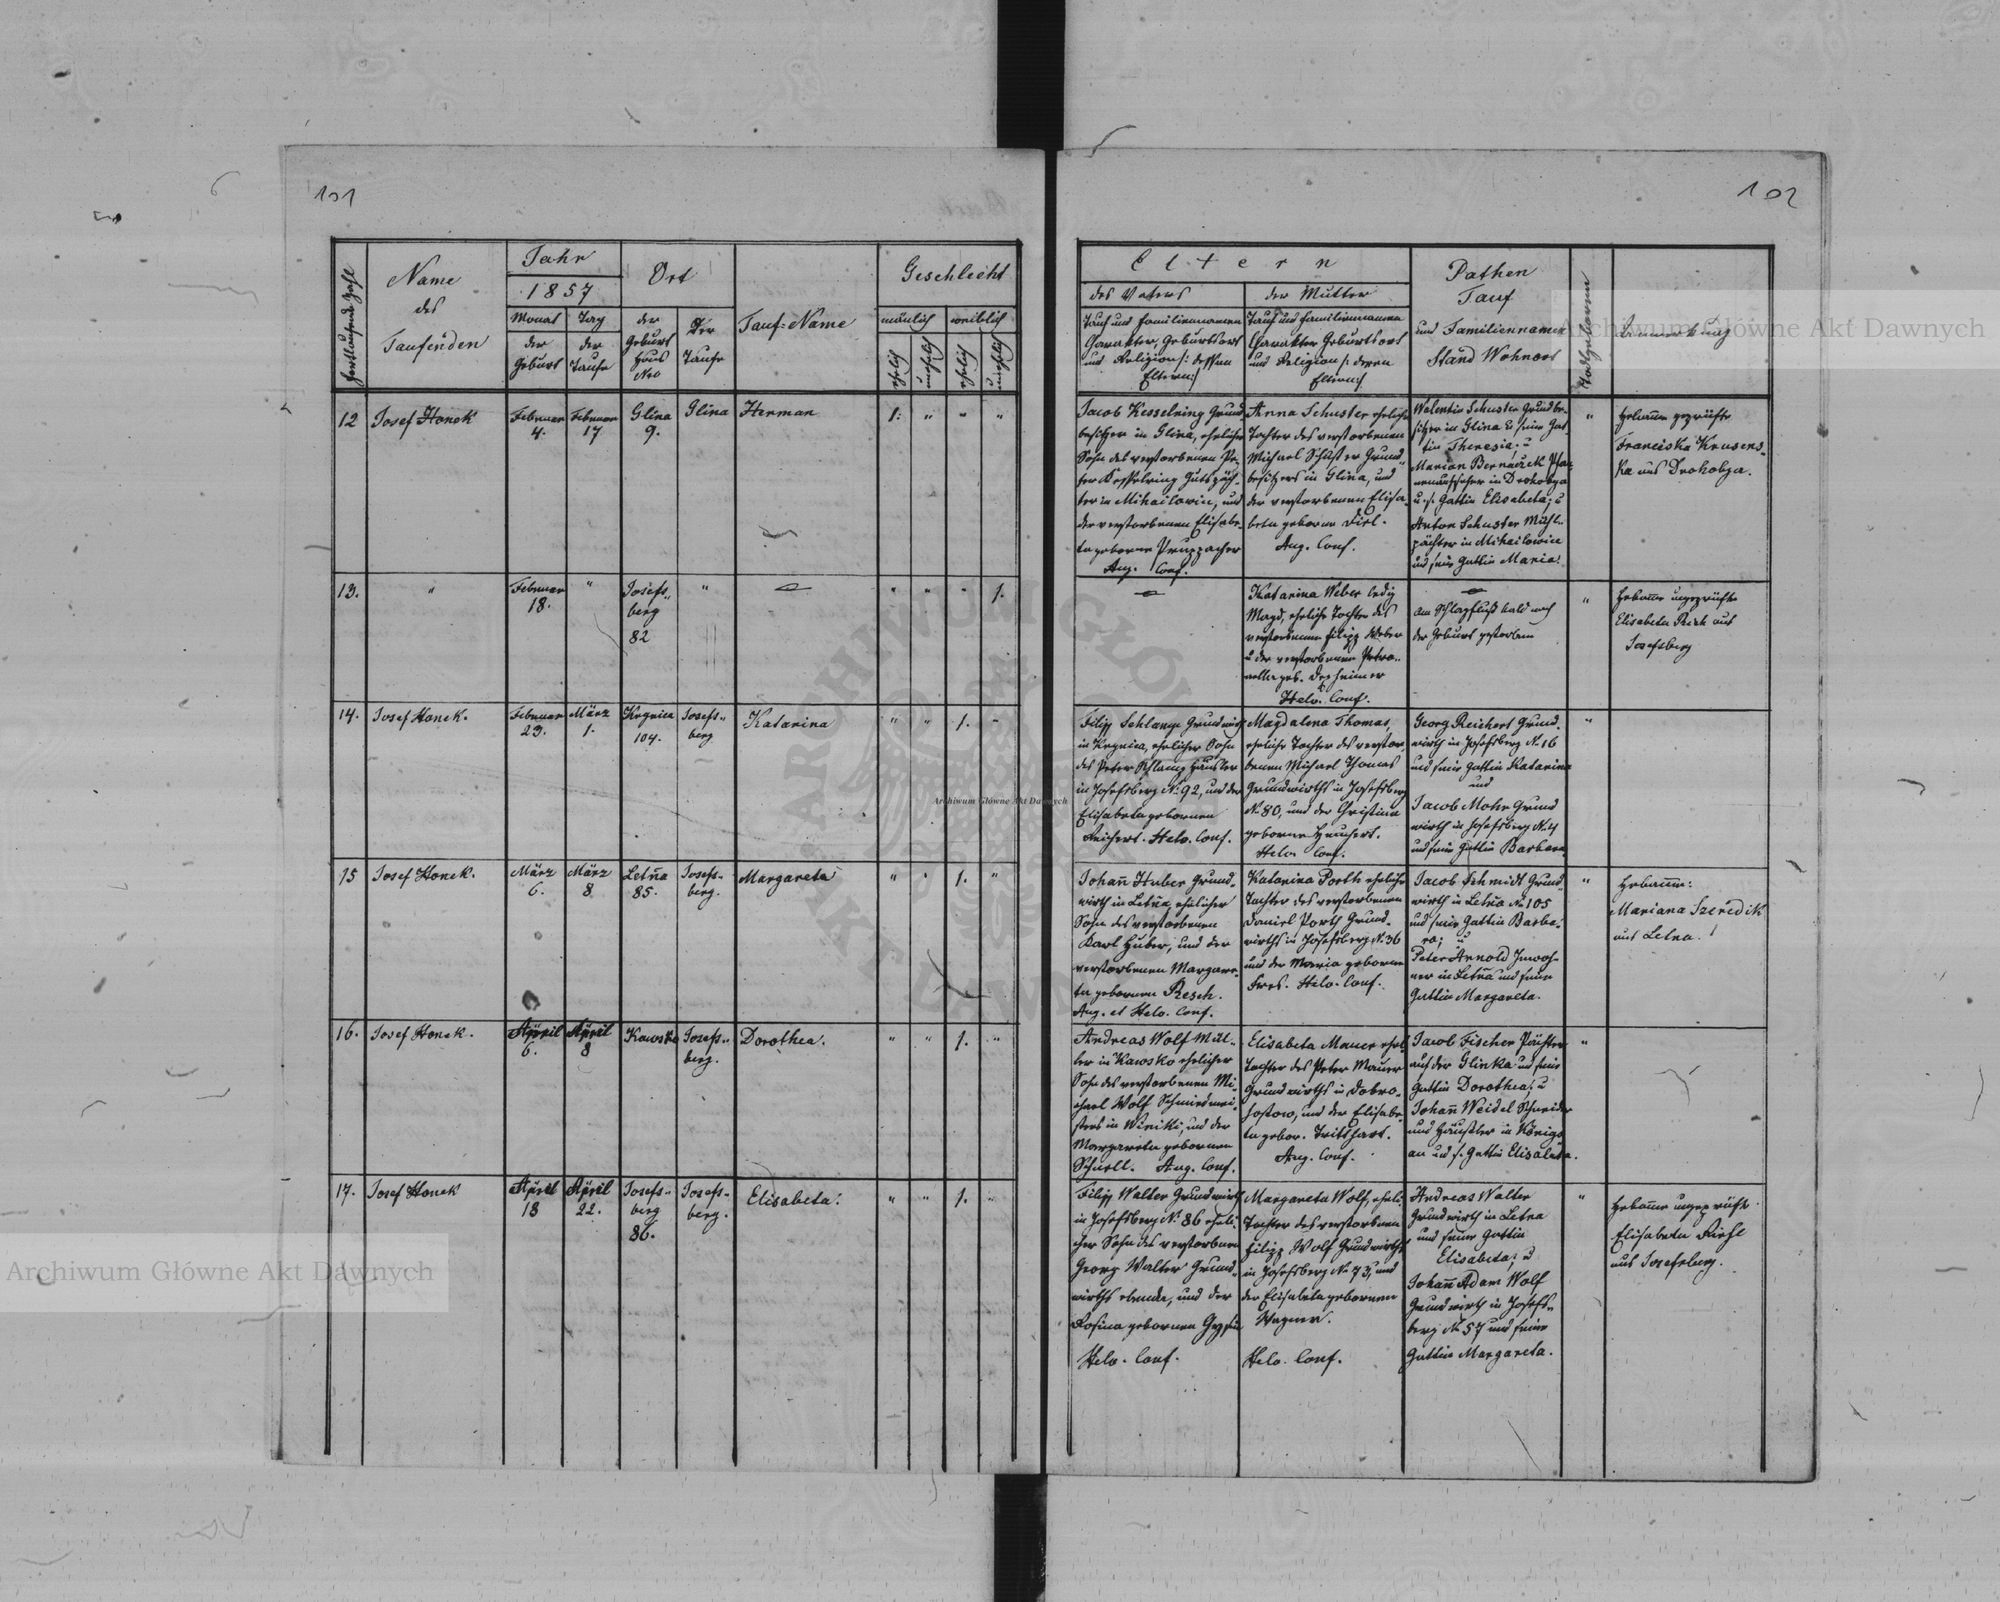 101
fortlaufende Zahl
Name
des
Taufenden
Jahr
1857
Monat
der
Geburt
Tag
der
Taufe
Ort
der
Geburt
Haus
Nro
der
Taufe
Tauf=Name
Geschlecht
mänlich
weiblich
ehelich
unehelich
ehelich
unehelich
12
Josef Honek
Februar
4.
Februar
17
Glina
9.
Glina
Herman
1.
"
"
"
13.
"
Februar
18.
"
Josefs-
berg
82
"
"
"
"
1.
14.
Josef Honek.
Februar
23.
März
1.
Krynica
104.
Josefs-
berg
Katarina
"
"
1.
"
15
Josef Honek.
März
6.
März
8
Letnia
85.
Josefs-
berg.
Margareta
"
"
1.
"
16.
Josef Honek.
April
6.
April
8
Kawsko
Josefs-
berg.
Dorothea.
"
"
1.
"
17.
Josef Honek
April
18
April
22.
Josefs-
berg
86.
Josefs-
berg.
Elisabeta.
"
"
1.
"
102
Eltern
des Vaters
der Mutter
Tauf und Familiennamen
Charakter, Geburtsort
und Religion /: dessen
Eltern :/
Tauf und Familiennamen
Charakter Geburtsort
und Religion /: deren
Eltern :/
Pathen
Tauf
und Familiennamen
Stand Wohnort
Todtgeboren
Anmerkung
Jacob Kesselring Grund
besitzer in Glina, ehelicher
Sohn des verstorbenen Pe-
ter Kesselring Gutspäch-
ter in Mihailowice, und
der verstorbenen Elisabe-
ta geborne Pruppacher
Aug. Conf.
Anna Schuster eheliche
Tochter des verstorbenen
Michael Schuster Grund-
besitzers in Glina, und
der verstorbenen Elisa-
beta geborne Diel.
Aug. Conf.
Walentin Schuster Grundbe-
sitzer in Glina & seine Gat-
tin Theresia; u
Marian Bernaczek
in Drohobyz
u. s. Gattin Elisabeta; u
Anton Schuster Mühl-
pächter in Mihailowice
und seine Gattin Maria.
"
Hebamme geprüfte
Franciska Krusens-
ka aus Drohobza.
Katarina Weber ledig
Magd, eheliche Tochter des
verstorbenen Filipp Weber
u der verstorbenen Petro-
nella geb. Dexheimer
Helv. Conf.
am Schlagfluß bald nach
der Geburt gestorben
"
Hebamme ungeprüfte
Elisabeta aus
Josefsberg
Filipp Schlamp Grundwirth
in Krynica, ehelicher Sohn
des Peter Schlamp Häusler
in Josefsberg No 92, und der
Elisabeta gebornen
Reichert. Helv. Conf.
Magdalena Thomas,
eheliche Tochter des verstor-
benen Michael Thomas
Grundwirths in Josefsberg
No 80, und der Christina
geborne Heuchert.
Helv. Conf.
Georg Reichert Grund-
wirth in Josefsberg No 16
und seine Gattin Katarina
und
Jacob Mohr Grund
wirth in Josefsberg No 4
und seine Gattin Barbara
"
Johann Huber Grund-
wirth in Letnia, ehelicher
Sohn des verstorbenen
Karl Huber, und der
verstorbenen Margare-
ta gebornen Resch.
Aug. et Helv. Conf.
Katarina Porth eheliche
Tochter des verstorbenen
Daniel Porth Grund-
wirths in Josefsberg No 36
und der Maria geborne
Helv. Conf.
Jacob Schmidt Grund-
wirth in Letnia No 105
und seine Gattin Barba-
ra; u
Peter Arnold Inwoh-
ner in Letnia und seine
Gattin Margareta.
"
Hebamme:
Mariana Szeredik
aus Letna.
Andreas Wolf Mül-
ler in Kawsko ehelicher
Sohn des verstorbenen Mi-
chael Wolf Schmiedmei-
sters in Winiki, und der
Margareta gebornen
Schnell. Aug. Conf.
Elisabeta Mauer ehel.
Tochter des Peter Mauer
Grundwirths in Dobro-
hostow, und der Elisabe-
ta gebor. Tritthart.
Aug. Conf.
Jacob Fischer Pächter
auf der Glinka und seine
Gattin Dorothea; u
Johann Weidel Schneider
und Häusler in Königs-
au und s. Gattin Elisabeta.
"
Filipp Walter Grundwirth
in Josefsberg No 86 eheli-
cher Sohn des verstorbenen
Georg Walter Grund-
wirths ebenda, und der
Rosina gebornen
Helv. Conf.
Margareta Wolf, eheli.
Tochter des verstorbenen
Filipp Wolf Grundwirths
in Josefsberg No 73, und
der Elisabeta gebornen
Wagner.
Helv. Conf.
Andreas Walter
Grundwirth in Letna
und seine Gattin
Elisabeta; u
Johann Adam Wolf
Grundwirth in Josefs-
berg No 57 und seine
Gattin Margareta.
"
Hebamme ungeprüfte
Elisabeta Diehl
aus Josefsberg.
Archiwum Główne Akt Dawnych
Archiwum Główne Akt Dawnych
Archiwum Główne Akt Dawnych